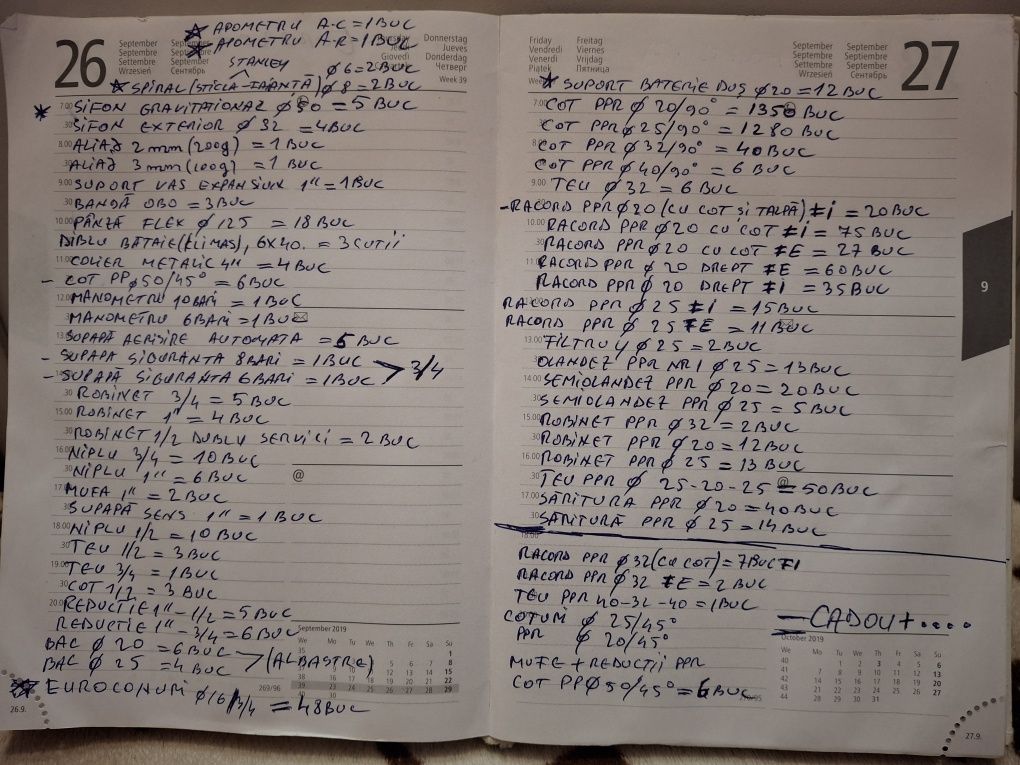 26
September
Septembre
Settembre
Setiembre
Wrzesień
Сентябрь
Donnerstag
Jueves
Giovedì
Donderdag
Четверг
Week 39
* APOMETRU A.C = 1 BUC
* APOMETRU A.R = 1 BUC
STANLEY
Ø 6 = 2 BUC
* SPIRAL (STICLA-FAIANTĂ) Ø 8 = 2 BUC
* SIFON GRAVITATIONAL Ø 50 = 5 BUC
SIFON EXTERIOR Ø 32 = 4 BUC
ALIAJ 2 mm (200g) = 1 BUC
ALIAJ 3 mm (100g) = 1 BUC
SUPORT VAS EXPANSIUN 1" = 1 BUC
BANDĂ OBO = 3 BUC
PÂNZĂ FLEX Ø 125 = 18 BUC
DIBLU BĂTAIE (KLIMAS), 6X40. = 3 CUTII
COLIER METALIC 4" = 4 BUC
- COT PP Ø 50/45° = 6 BUC
MANOMETRU 10 BARI = 1 BUC
MANOMETRU 6 BARI = 1 BUC
SUPAPĂ AERISIRE AUTOMATA = 5 BUC
- SUPAPA SIGURANTA 8 BARI = 1 BUC
- SUPAPĂ SIGURANTA 6 BARI = 1 BUC > 3/4
ROBINET 3/4 = 5 BUC
ROBINET 1" = 4 BUC
ROBINET 1/2 DUBLU SERVICI = 2 BUC
NIPLU 3/4 = 10 BUC
NIPLU 1" = 6 BUC
MUFA 1" = 2 BUC
SUPAPĂ SENS 1" = 1 BUC
NIPLU 1/2 = 10 BUC
TEU 1/2 = 3 BUC
TEU 3/4 = 1 BUC
COT 1/2 = 3 BUC
REDUCTIE 1" - 1/2 = 5 BUC
REDUCTIE 1" - 3/4 = 6 BUC
BAC Ø 20 = 6 BUC
BAC Ø 25 = 4 BUC > (ALBASTRE)
* EUROCONURI Ø 16/3/4 = 48 BUC
September 2019
269/96
26.9.
27
Friday
Vendredi
Venerdì
Viernes
Piątek
Freitag
Viernes
Vrijdag
Пятница
September
Septembre
Settembre
Septiembre
Wrzesień
Сентябрь
* SUPORT BATERIE DUȘ Ø 20 = 12 BUC
COT PPR Ø 20/90° = 1350 BUC
COT PPR Ø 25/90° = 1280 BUC
COT PPR Ø 32/90° = 40 BUC
COT PPR Ø 40/90° = 6 BUC
TEU Ø 32 = 6 BUC
- RACORD PPR Ø 20 (CU COT ȘI TALPĂ) FI = 20 BUC
RACORD PPR Ø 20 CU COT FI = 75 BUC
RACORD PPR Ø 20 CU COT FE = 27 BUC
RACORD PPR Ø 20 DREPT FE = 60 BUC
RACORD PPR Ø 20 DREPT FI = 35 BUC
RACORD PPR Ø 25 FI = 15 BUC
RACORD PPR Ø 25 FE = 11 BUC
FILTRU Y Ø 25 = 2 BUC
OLANDEZ PPR NR 1 Ø 25 = 13 BUC
SEMIOLANDEZ PPR Ø 20 = 20 BUC
SEMIOLANDEZ PPR Ø 25 = 5 BUC
ROBINET PPR Ø 32 = 2 BUC
ROBINET PPR Ø 20 = 12 BUC
ROBINET PPR Ø 25 = 13 BUC
TEU PPR Ø 25-20-25 = 50 BUC
SĂRITURA PPR Ø 20 = 40 BUC
SĂRITURĂ PPR Ø 25 = 14 BUC
RACORD PPR Ø 32 (CU COT) = 7 BUC FI
RACORD PPR Ø 32 FE = 2 BUC
TEU PPR 40-32-40 = 1 BUC
COTURI Ø 25/45°
PPR Ø 20/45° = CADOU + ....
MUFE + REDUCTII PPR
COT PP Ø 50/45° = 6 BUC
October 2019
9
27.9.